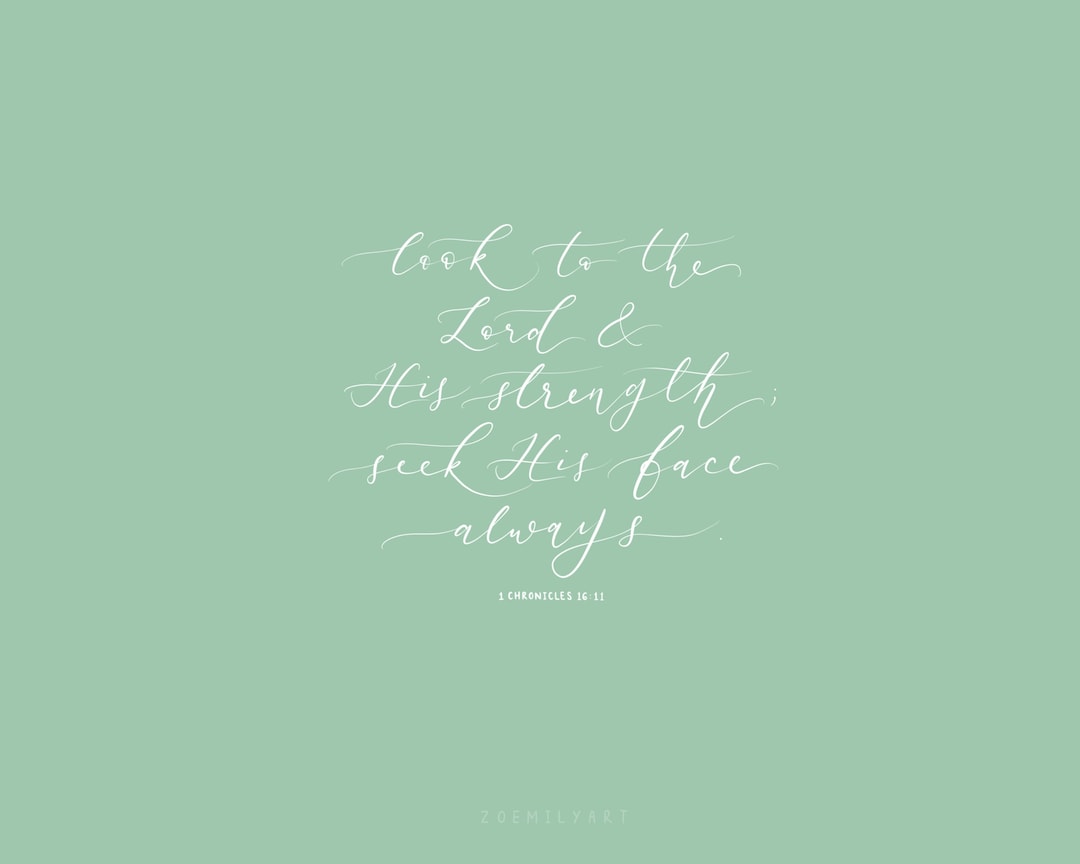 look to the
Lord &
His strength;
seek His face
always.
1 CHRONICLES 16:11
ZOEMILYART